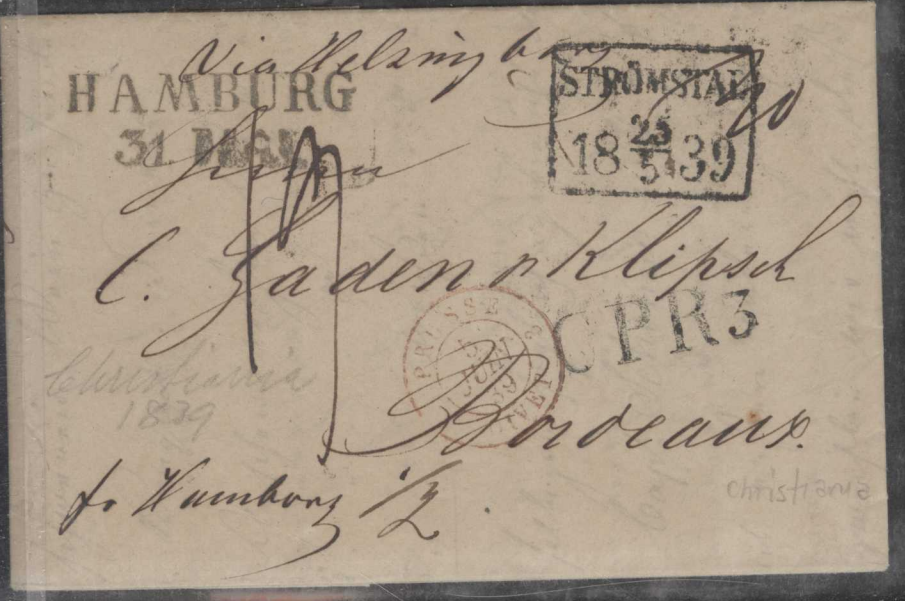 Via Helsingborg
HAMBURG
31 MAI
STRÖMSTAD
18 25/5 39
Herren
C. Zaden & Klipsch
CPR3
PRUSSE
JUIN
39
Christiania
1839
Bordeaux.
fr Hamborg
christiania